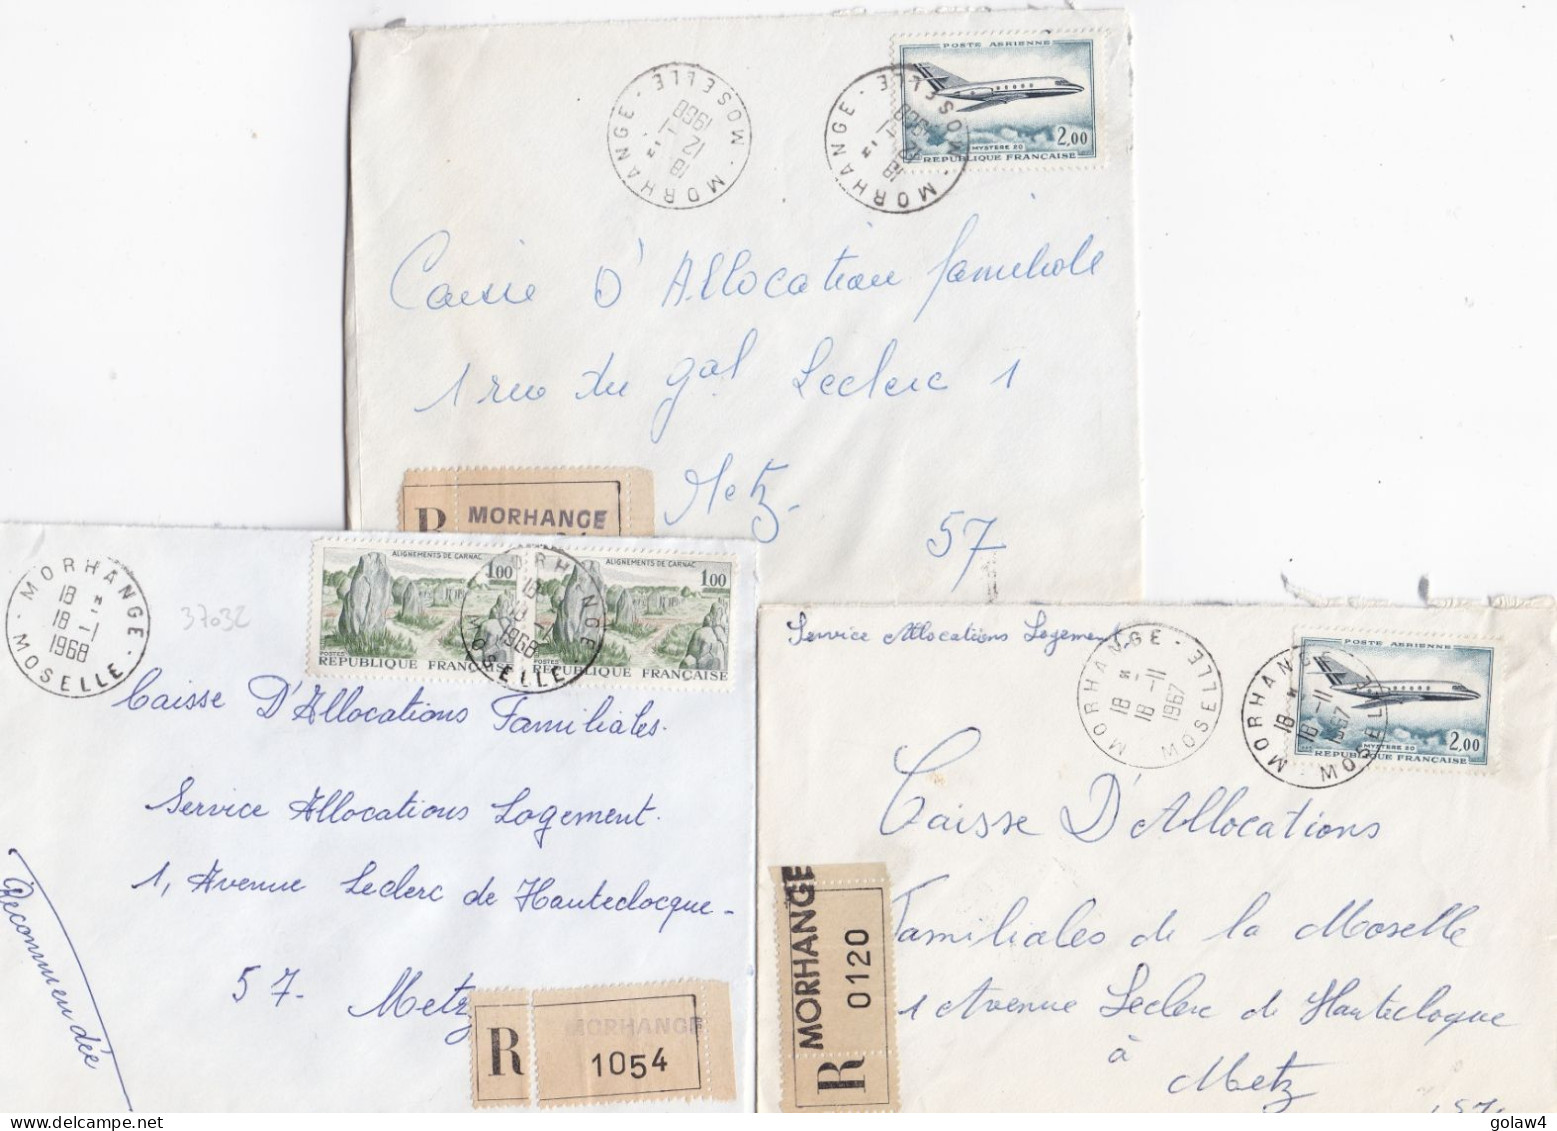 MORHANGE · MOSELLE
18
12 -1
1968
MORHANGE · MOSELLE
18
12 -1
1968
POSTE AERIENNE
MYSTERE 20
2,00
REPUBLIQUE FRANÇAISE
Caisie D'Allocation familiale
1 rue du gal Leclerc 1
Metz.
57
R MORHANGE
MORHANGE · MOSELLE
18 H
18 -1
1968
37032
ALIGNEMENTS DE CARNAC
1,00
POSTES
REPUBLIQUE FRANÇAISE
ALIGNEMENTS DE CARNAC
1,00
POSTES
REPUBLIQUE FRANÇAISE
MORHANGE
18
18 -1
1968
MOSELLE
Caisse D'Allocations Familiales.
Service Allocations Logement.
1, Avenue Leclerc de Hauteclocque -
57. Metz
Recommendée
R
MORHANGE
1054
Service Allocations Logement
MORHANGE · MOSELLE
18 H
18 -11
1967
MORHANGE · MOSELLE
18 H
18 -11
1967
POSTE AERIENNE
MYSTERE 20
2,00
REPUBLIQUE FRANÇAISE
Caisse D'Allocations
Familiales de la Moselle
1 Avenue Leclerc de Hauteclogue
à
Metz
(57)
R
MORHANGE
0120
© golaw4